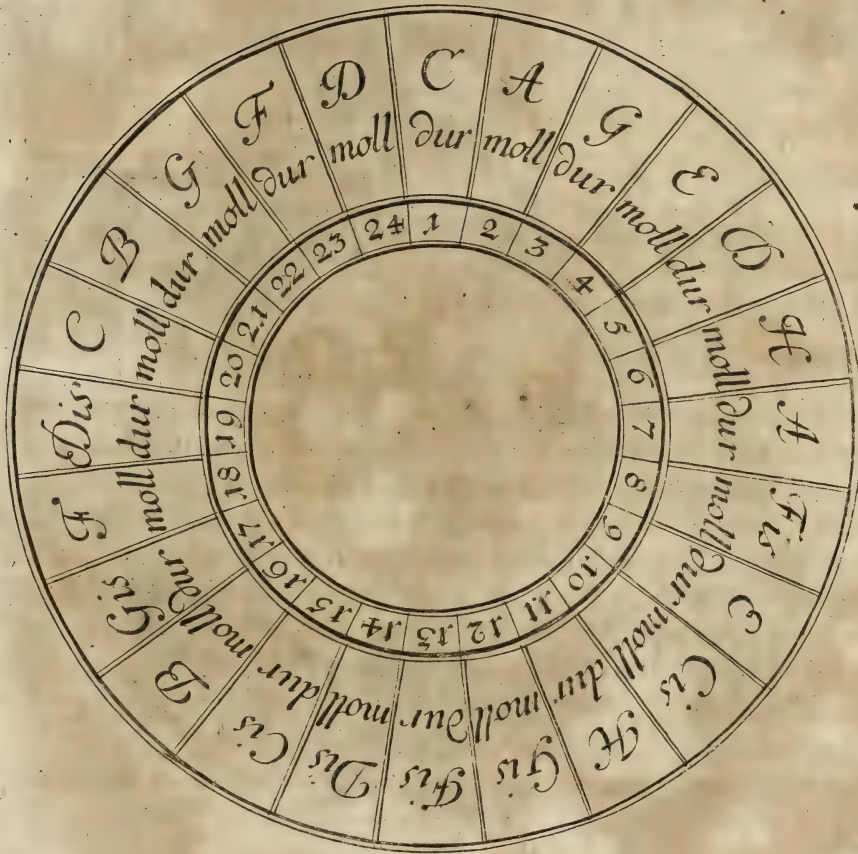 C dur 1
A moll 2
G dur 3
E moll 4
D dur 5
H moll 6
A dur 7
Fis moll 8
E dur 9
Cis moll 10
H dur 11
Gis moll 12
Fis dur 13
Dis moll 14
Cis dur 15
B moll 16
Gis dur 17
F moll 18
Dis dur 19
C moll 20
B dur 21
G moll 22
F dur 23
D moll 24